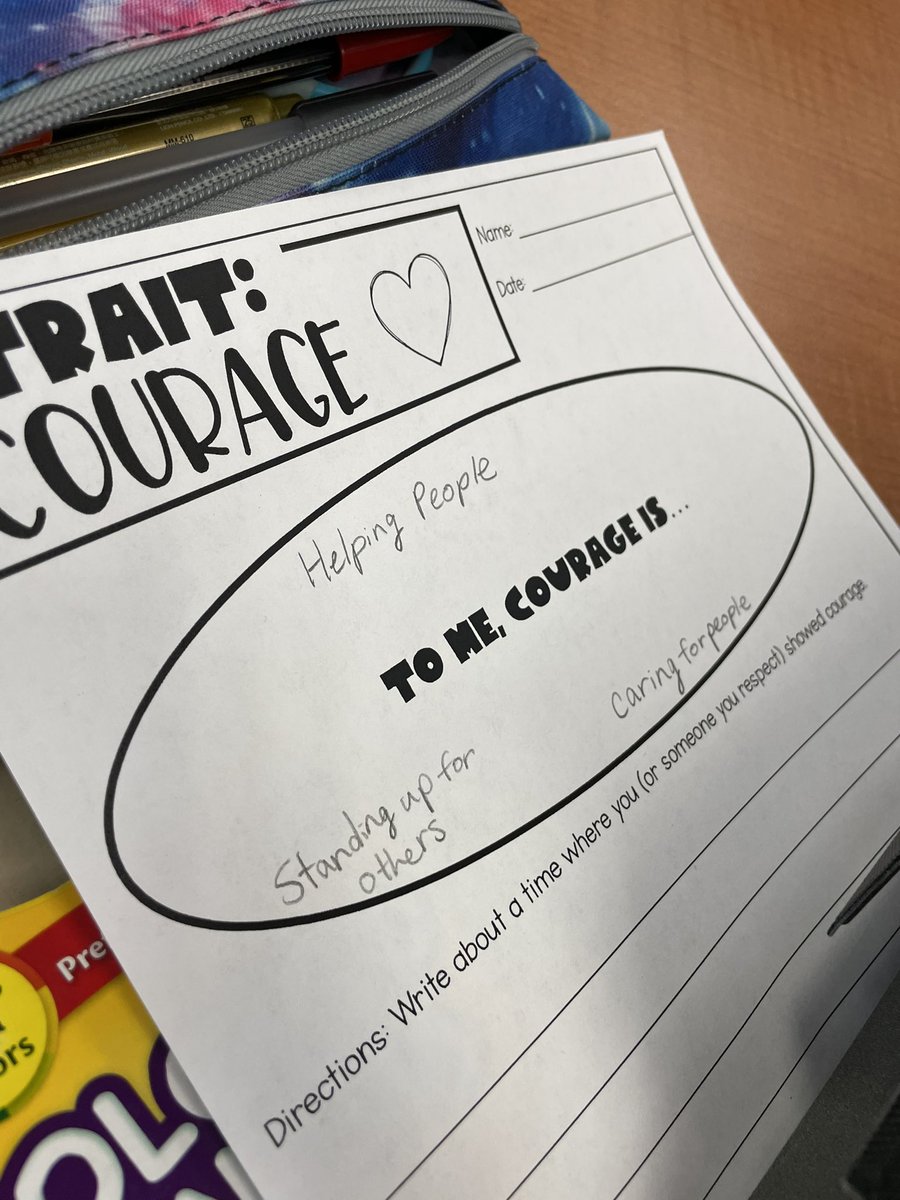 MM-610
TRAIT:
COURAGE
Name:
Date:
Helping People
TO ME, COURAGE IS...
Caring for people
Standing up for
others
Directions: Write about a time where you (or someone you respect) showed courage.
Pre
ors
OLO